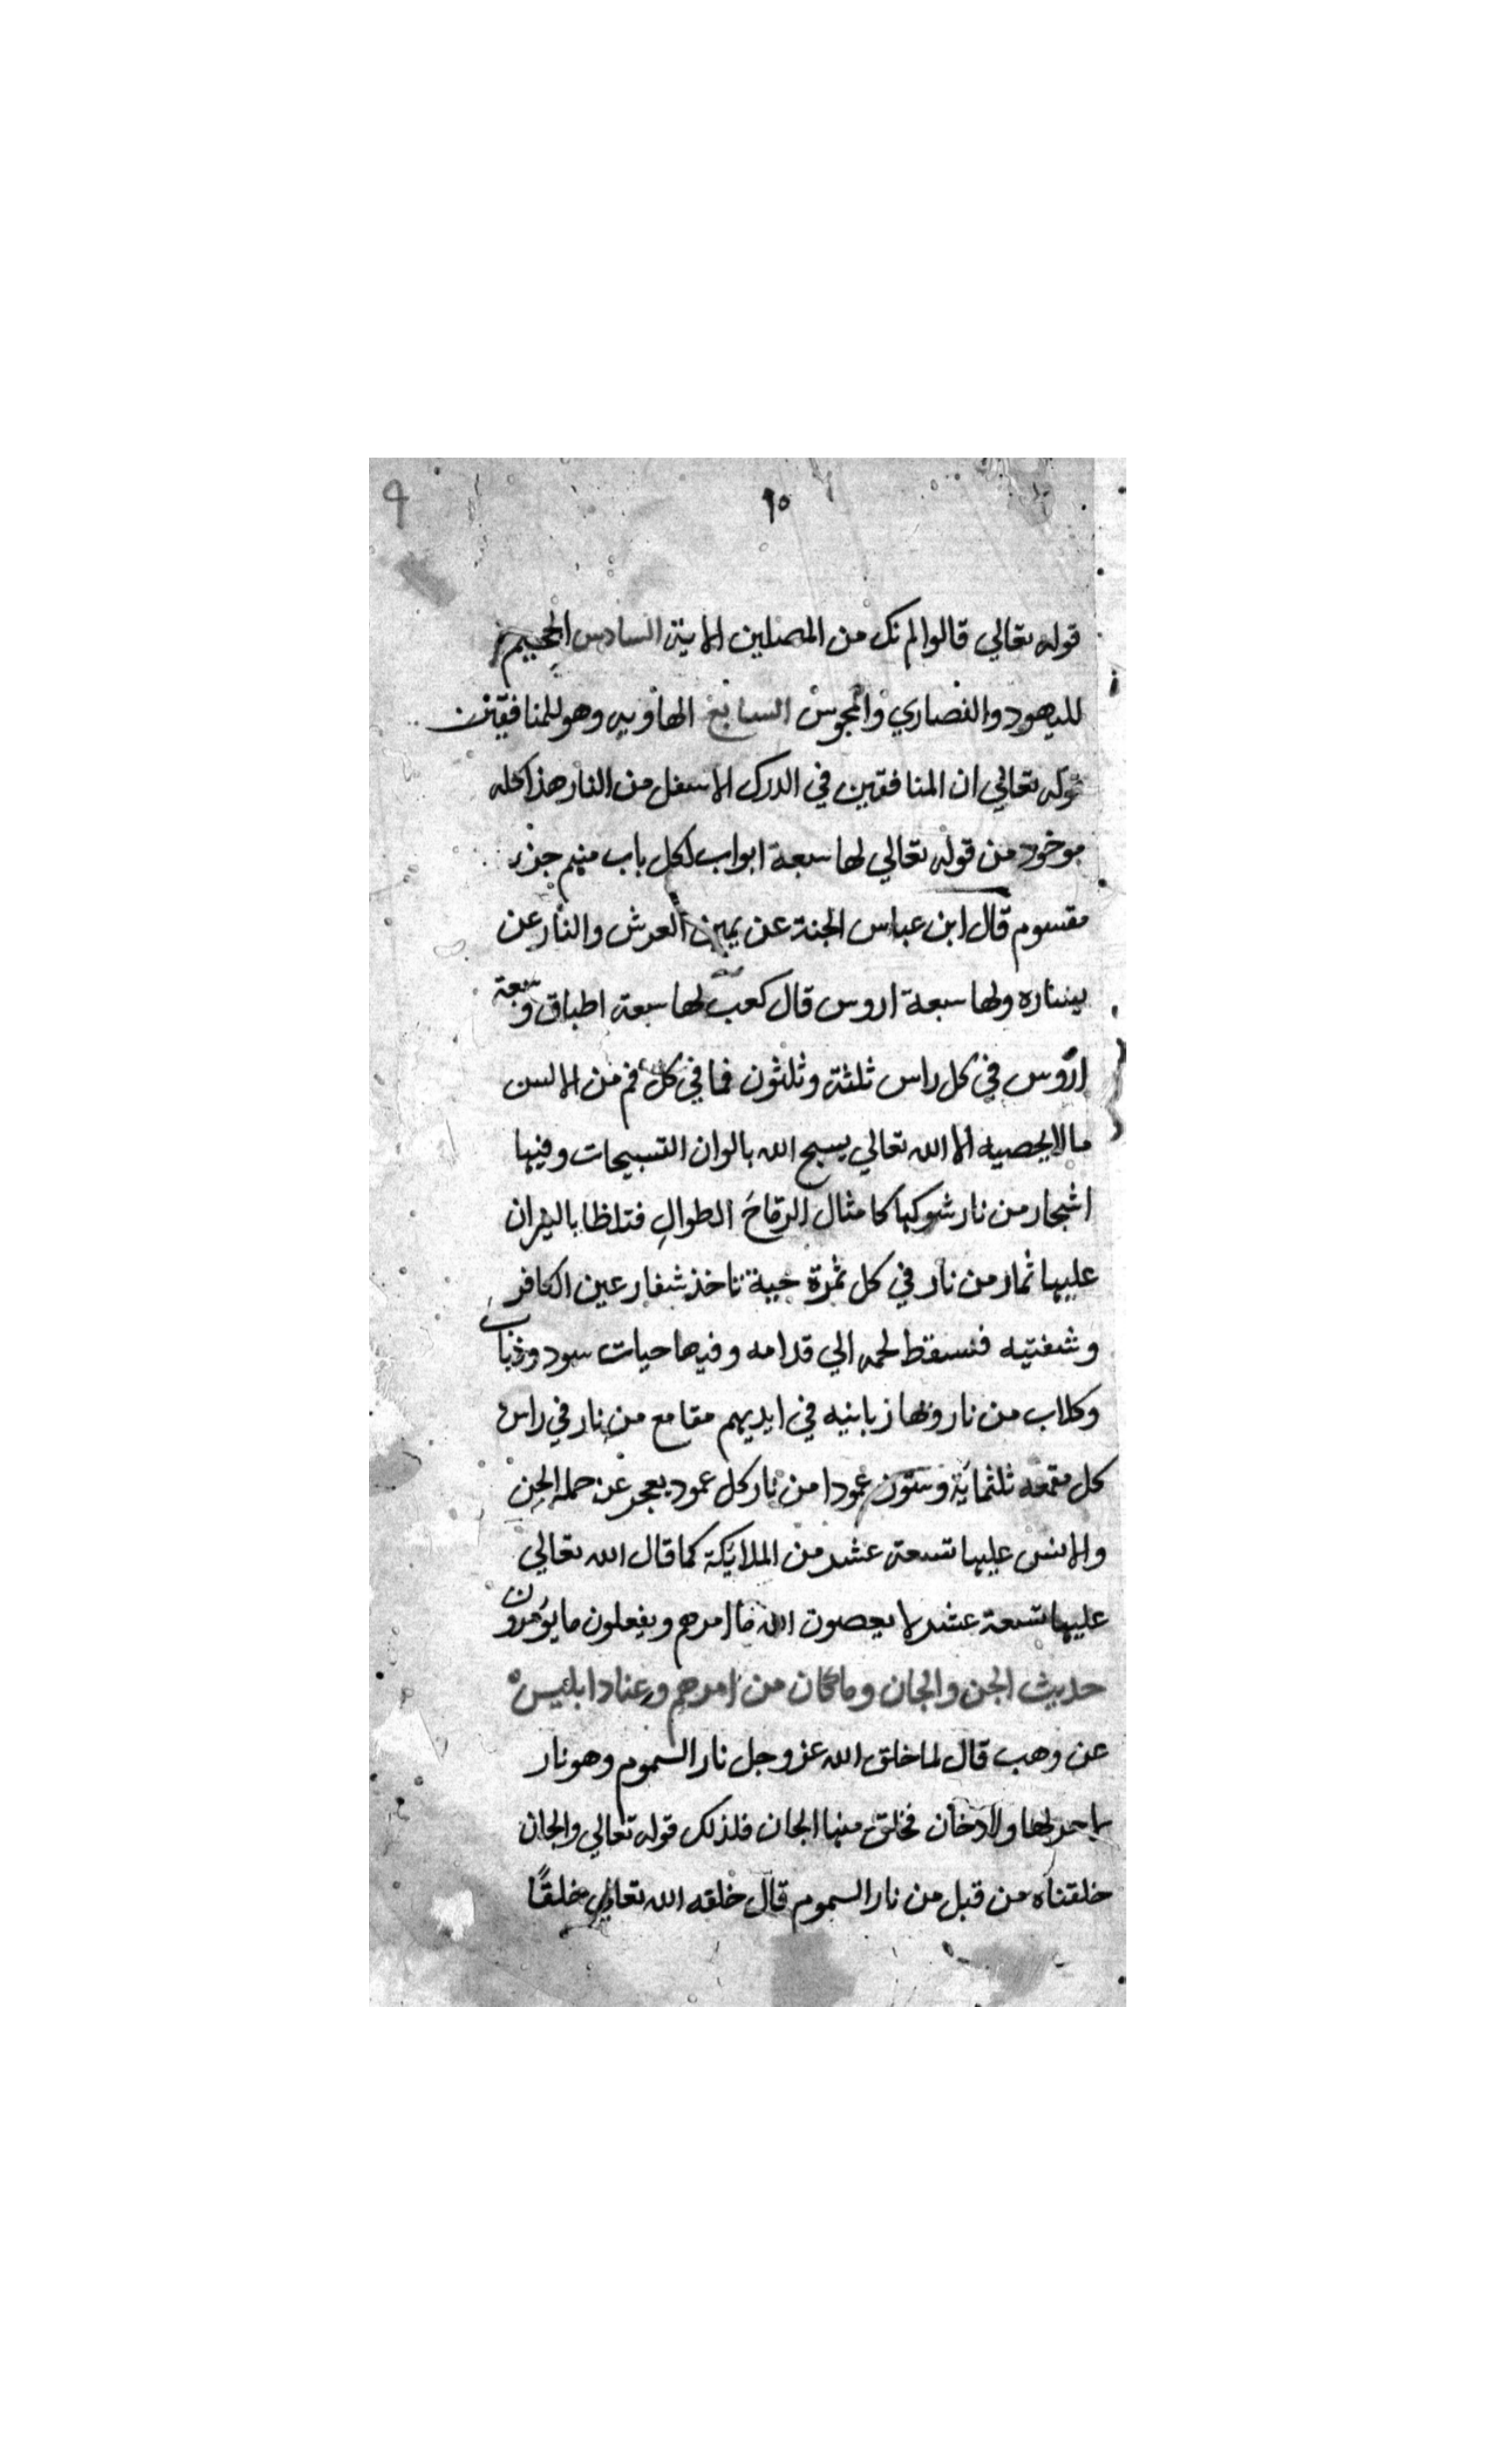 ٩
١٥
قوله تعالي قالوا لم نك من المصلين الاية السادس الجحيم
لليهود والنصاري والمجوس السابع الهاويه وهو للمنافقين
قوله تعالي ان المنافقين في الدرك الاسفل من النار هذا كله
موخود من قوله تعالي لها سبعة ابواب لكل باب منهم جزء
مقسوم قال ابن عباس الجنة عن يمين العرش والنار عن
يساره ولها سبعة اروس قال كعب لها سبعة اطباق وسبعة
اروس في كل راس ثلثة وثلثون فما في كل فم من الالسن
ما لا يحصيه الا الله تعالي يسبح الله بالوان التسبيحات وفيها
اشجار من نار شوكها كامثال الرماح الطوال فتلظا بالنيران
عليها ثمار من نار في كل ثمرة حية تاخذ شفار عين الكافر
وشفتيه فتسقط لحمه الي قدامه وفيها حيات سود وذباب
وكلاب من نار ولها زبانيه في ايديهم مقامع من نار في راس
كل مقمعه ثلثماية وستون عمودا من نار كل عمود يعجز عن حمله الجن
والانس عليها تسعة عشر من الملايكة كما قال الله تعالي
عليها تسعة عشر لا يعصون الله ما امرهم ويفعلون ما يؤمرون
حديث الجن والجان وما كان من امرهم وعناد ابليس
عن وهب قال لما خلق الله عز وجل نار السموم وهو نار
لا حر لها ولا دخان فخلق منها الجان فلذلك قوله تعالي والجان
خلقناه من قبل من نار السموم قال خلقه الله تعالي خلقًا